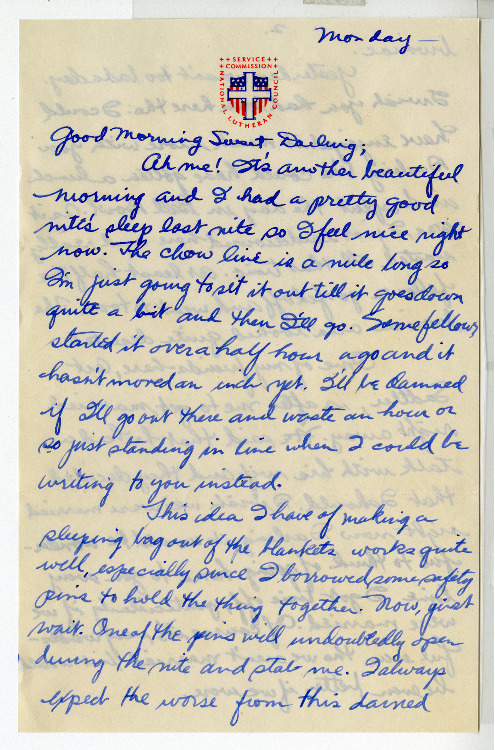 Monday —
SERVICE
COMMISSION
NATIONAL LUTHERAN COUNCIL
Good Morning Sweet Darling;
Ah me! It's another beautiful
morning and I had a pretty good
nite's sleep last nite so I feel nice right
now. The chow line is a mile long so
I'm just going to sit it out till it goes down
quite a bit and then I'll go. Some fellows
started it over a half hour ago and it
hasn't moved an inch yet. I'll be damned
if I'll go out there and waste an hour or
so just standing in line when I could be
writing to you instead.
This idea I have of making a
sleeping bag out of the blankets works quite
well, especially since I borrowed some safety
pins to hold the thing together. Now, just
wait. One of the pins will undoubtedly open
during the nite and stab me. I always
expect the worse from this darned